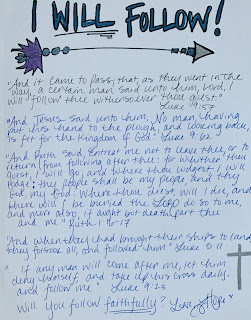 I WILL FOLLOW!
"And it came to pass, that, as they went in the
way, a certain man said unto him, Lord, I
will follow thee withersoever thou goest."
Luke 9:57
"And Jesus said unto him, No man, having
put his hand to the plough, and looking back,
is fit for the kingdom of God" Luke 9:62
"And Ruth said, Entreat me not to leave thee, or to
return from following after thee: for whither thou
goest, I will go; and where thou lodgest, I will
lodge; thy people shall be my people and thy
God my God: Where thou diest, will I die, and
there will I be buried: the LORD do so to me,
and more also, if aught but death part thee
and me" Ruth 1:16-17
"And when they had brought their ships to land,
they forsook all, and followed him" Luke 5:11
"if any man will come after me, let him
deny himself, and take up his cross daily,
and follow me" Luke 9:23
Will you follow faithfully? Love, Hope